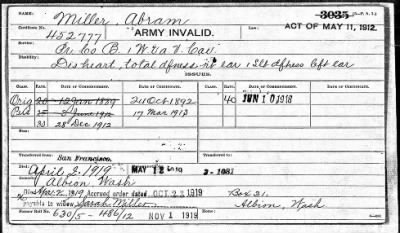 3035
Name, Miller, Abram
Certificate No. 452777 ARMY INVALID. ACT OF MAY 11, 1912.
Service, Pr. Co B. 1 W. Va V. Cav
Disability, Dis heart, total dfness rt ear & slt dfness left ear
ISSUES.
Orig 20 12 Jan 1889 21 Oct 1892 40 JUN 10 1918
25 8 June 1912 17 Mar 1913
30 28 Dec 1912
Transferred from San Francisco.
Died April 2, 1919 MAY 12 1919 3-1081
Albion, Wash
Mar 2, 1919 Accrued order dated OCT 22 1919 Box 21.
payable to widow Sarah Miller Albion, Wash
Home Roll No. 630/5-486/12 NOV 1 1919